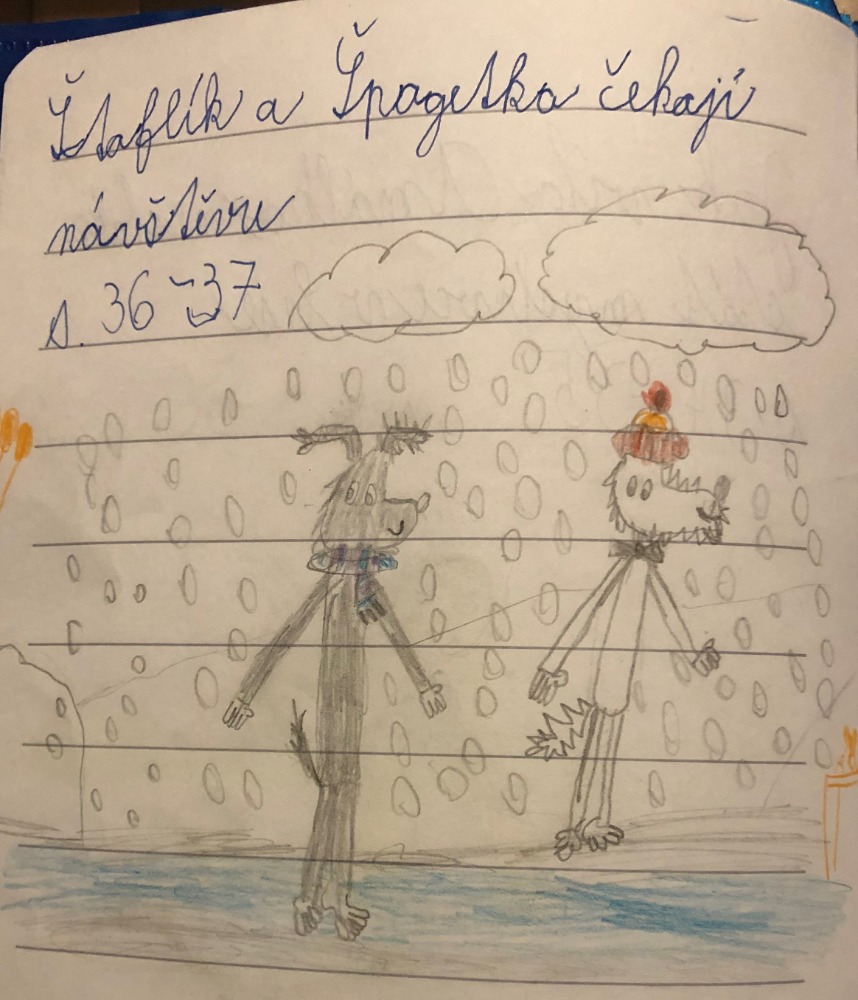 Štaflík a Špagetka čekají
návštěvu
s. 36 - 37